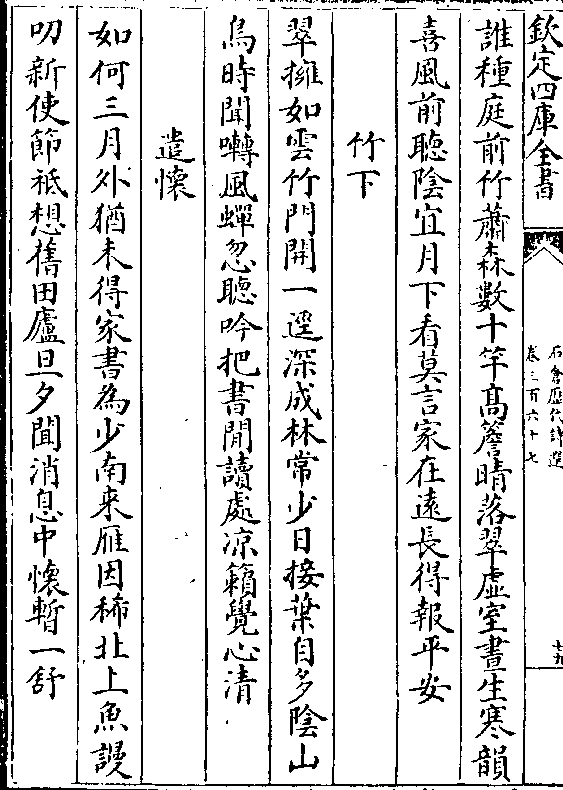 欽定四庫全書
石倉歴代詩選
卷三百六十七
七九
誰種庭前竹蕭森數十竿髙簷晴落翠虚室晝生寒韻
喜風前聽隂宜月下看莫言家在遠長得報平安
竹下
翠擁如雲竹門開一逕深成林常少日接葉自多隂山
鳥時聞囀風蟬忽聽吟把書閒讀處凉籟覺心清
遣懷
如何三月外猶未得家書為少南来雁因稀北上魚謾
叨新使節祗想舊田廬旦夕聞消息中懷暫一舒